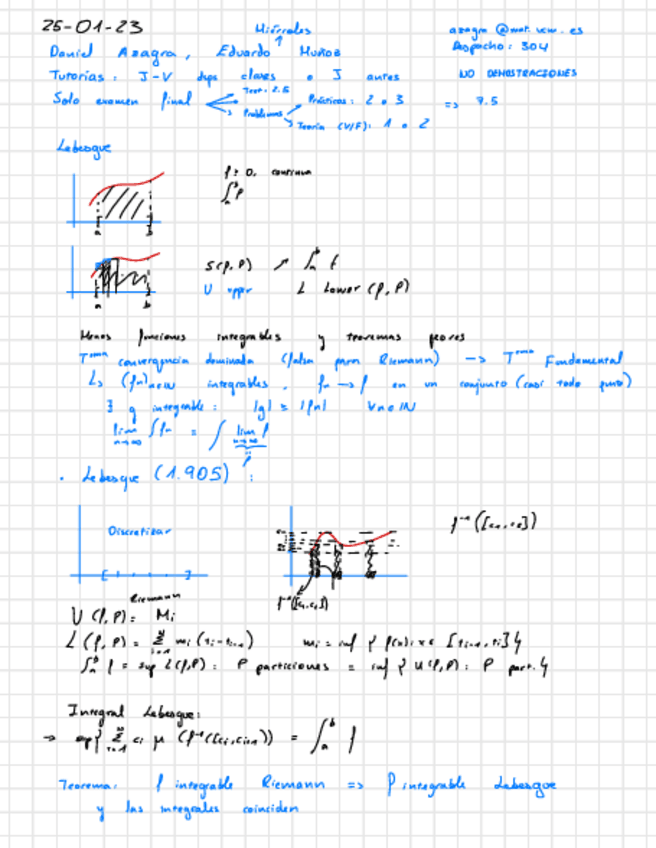 25-01-23
Miércoles
azagra @mat.ucm.es
Daniel Azagra, Eduardo Muñoz
Despacho: 304
Tutorías: J-V dsps clases o J antes
NO DEMOSTRACIONES
Solo examen final
Test: 2.5
Problemas
Prácticos: 2 o 3
Teoría (V/F): 1 o 2
=> 7.5
Lebesgue
f ≥ 0, continua
∫ₐᵇ f
a b
S(f, P) ↗ ∫ₐᵇ f
U upper L Lower (f, P)
a b
Menos funciones integrables y teoremas peores
Tᵉᵐᵃ convergencia dominada (falsa para Riemann) -> Tᵉᵐᵃ Fundamental
↳ (fn)n∈ℕ integrables, fn -> f en un conjunto (casi todo punto)
∃ g integrable: |g| ≥ |fn| ∀n∈ℕ
lim n→∞ ∫fn = ∫ lim n→∞ f
f
· Lebesgue (1.905):
Discretizar
f⁻¹([c₁,c₂])
f⁻¹([c₁,c₂])
Riemann
U(f,P) = Mi
L(f,P) = Σ mi (ti-ti-1) mi = inf { f(x): x ∈ [ti-1, ti]}
∫ₐᵇ f = sup L(f,P): P particiones = inf { U(f,P): P part. }
Integral Lebesgue:
→ sup{ Σ ci μ (f⁻¹([ci,ci+1)) = ∫ₐᵇ f
Teorema: f integrable Riemann => f integrable Lebesgue
y las integrales coinciden